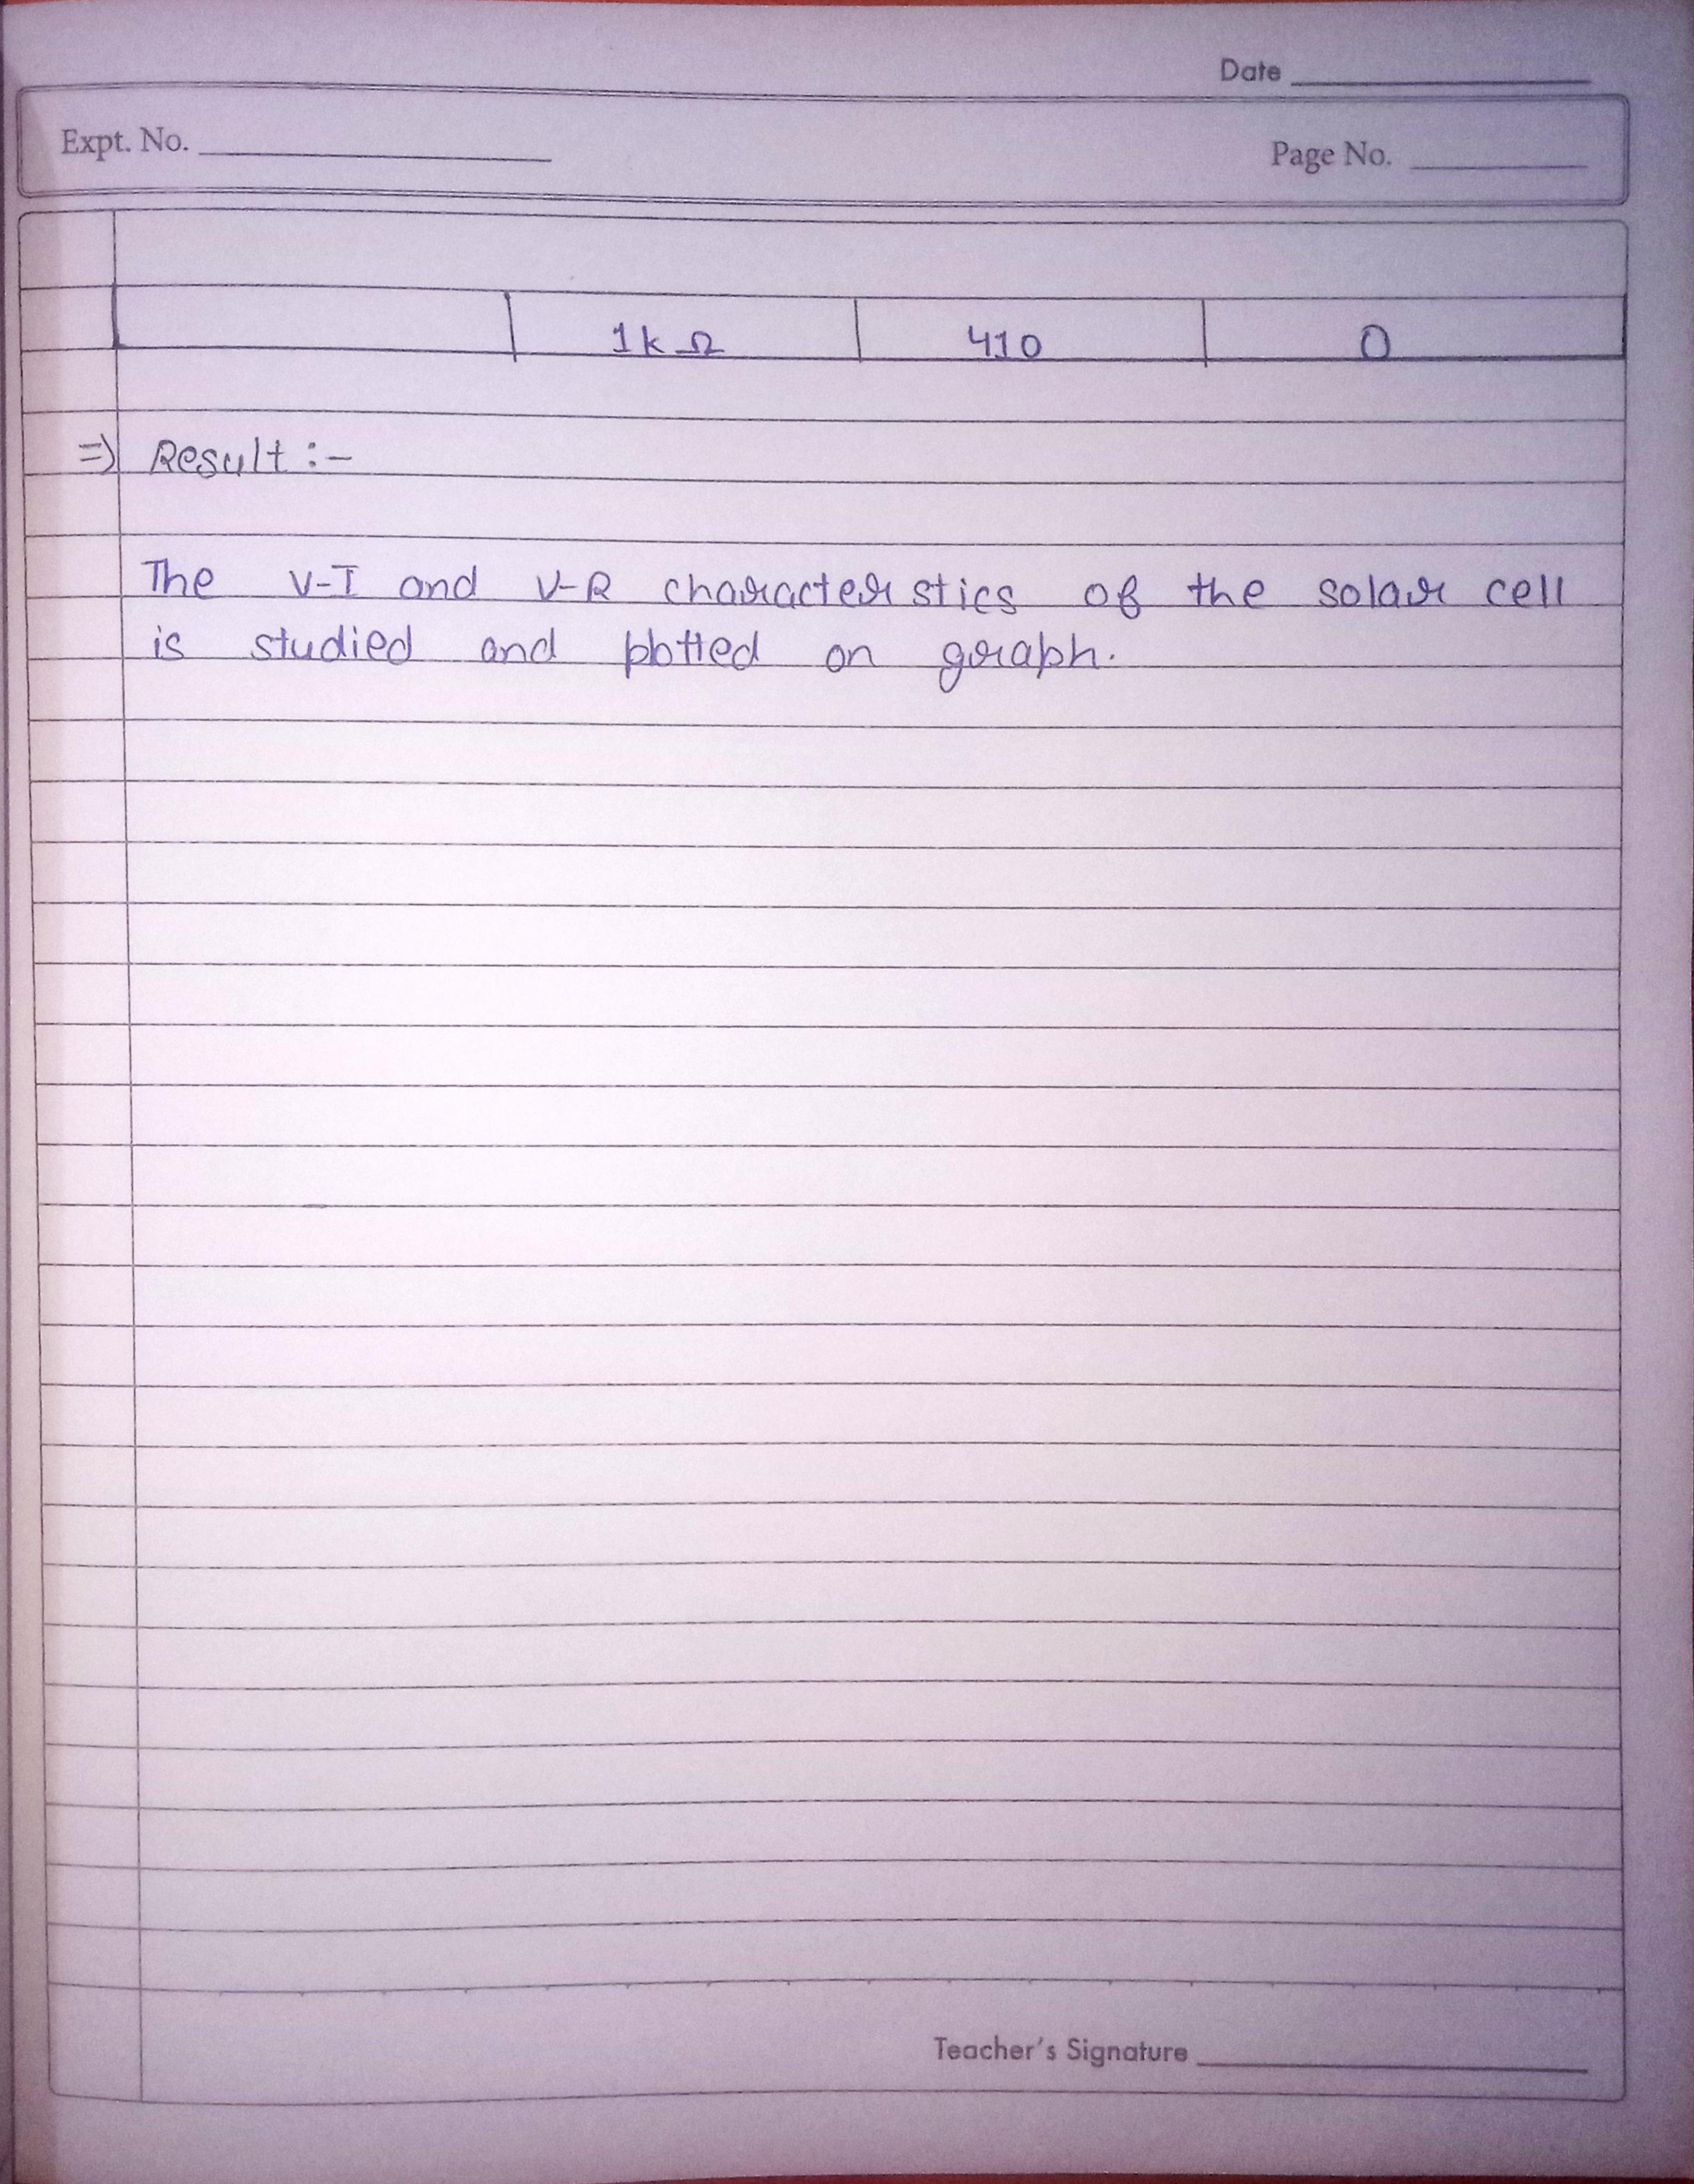 Date
Expt. No.
Page No.
1k Ω 410 0
=> Result :-
The V-I and V-R characteristics of the solar cell
is studied and plotted on graph.
Teacher's Signature